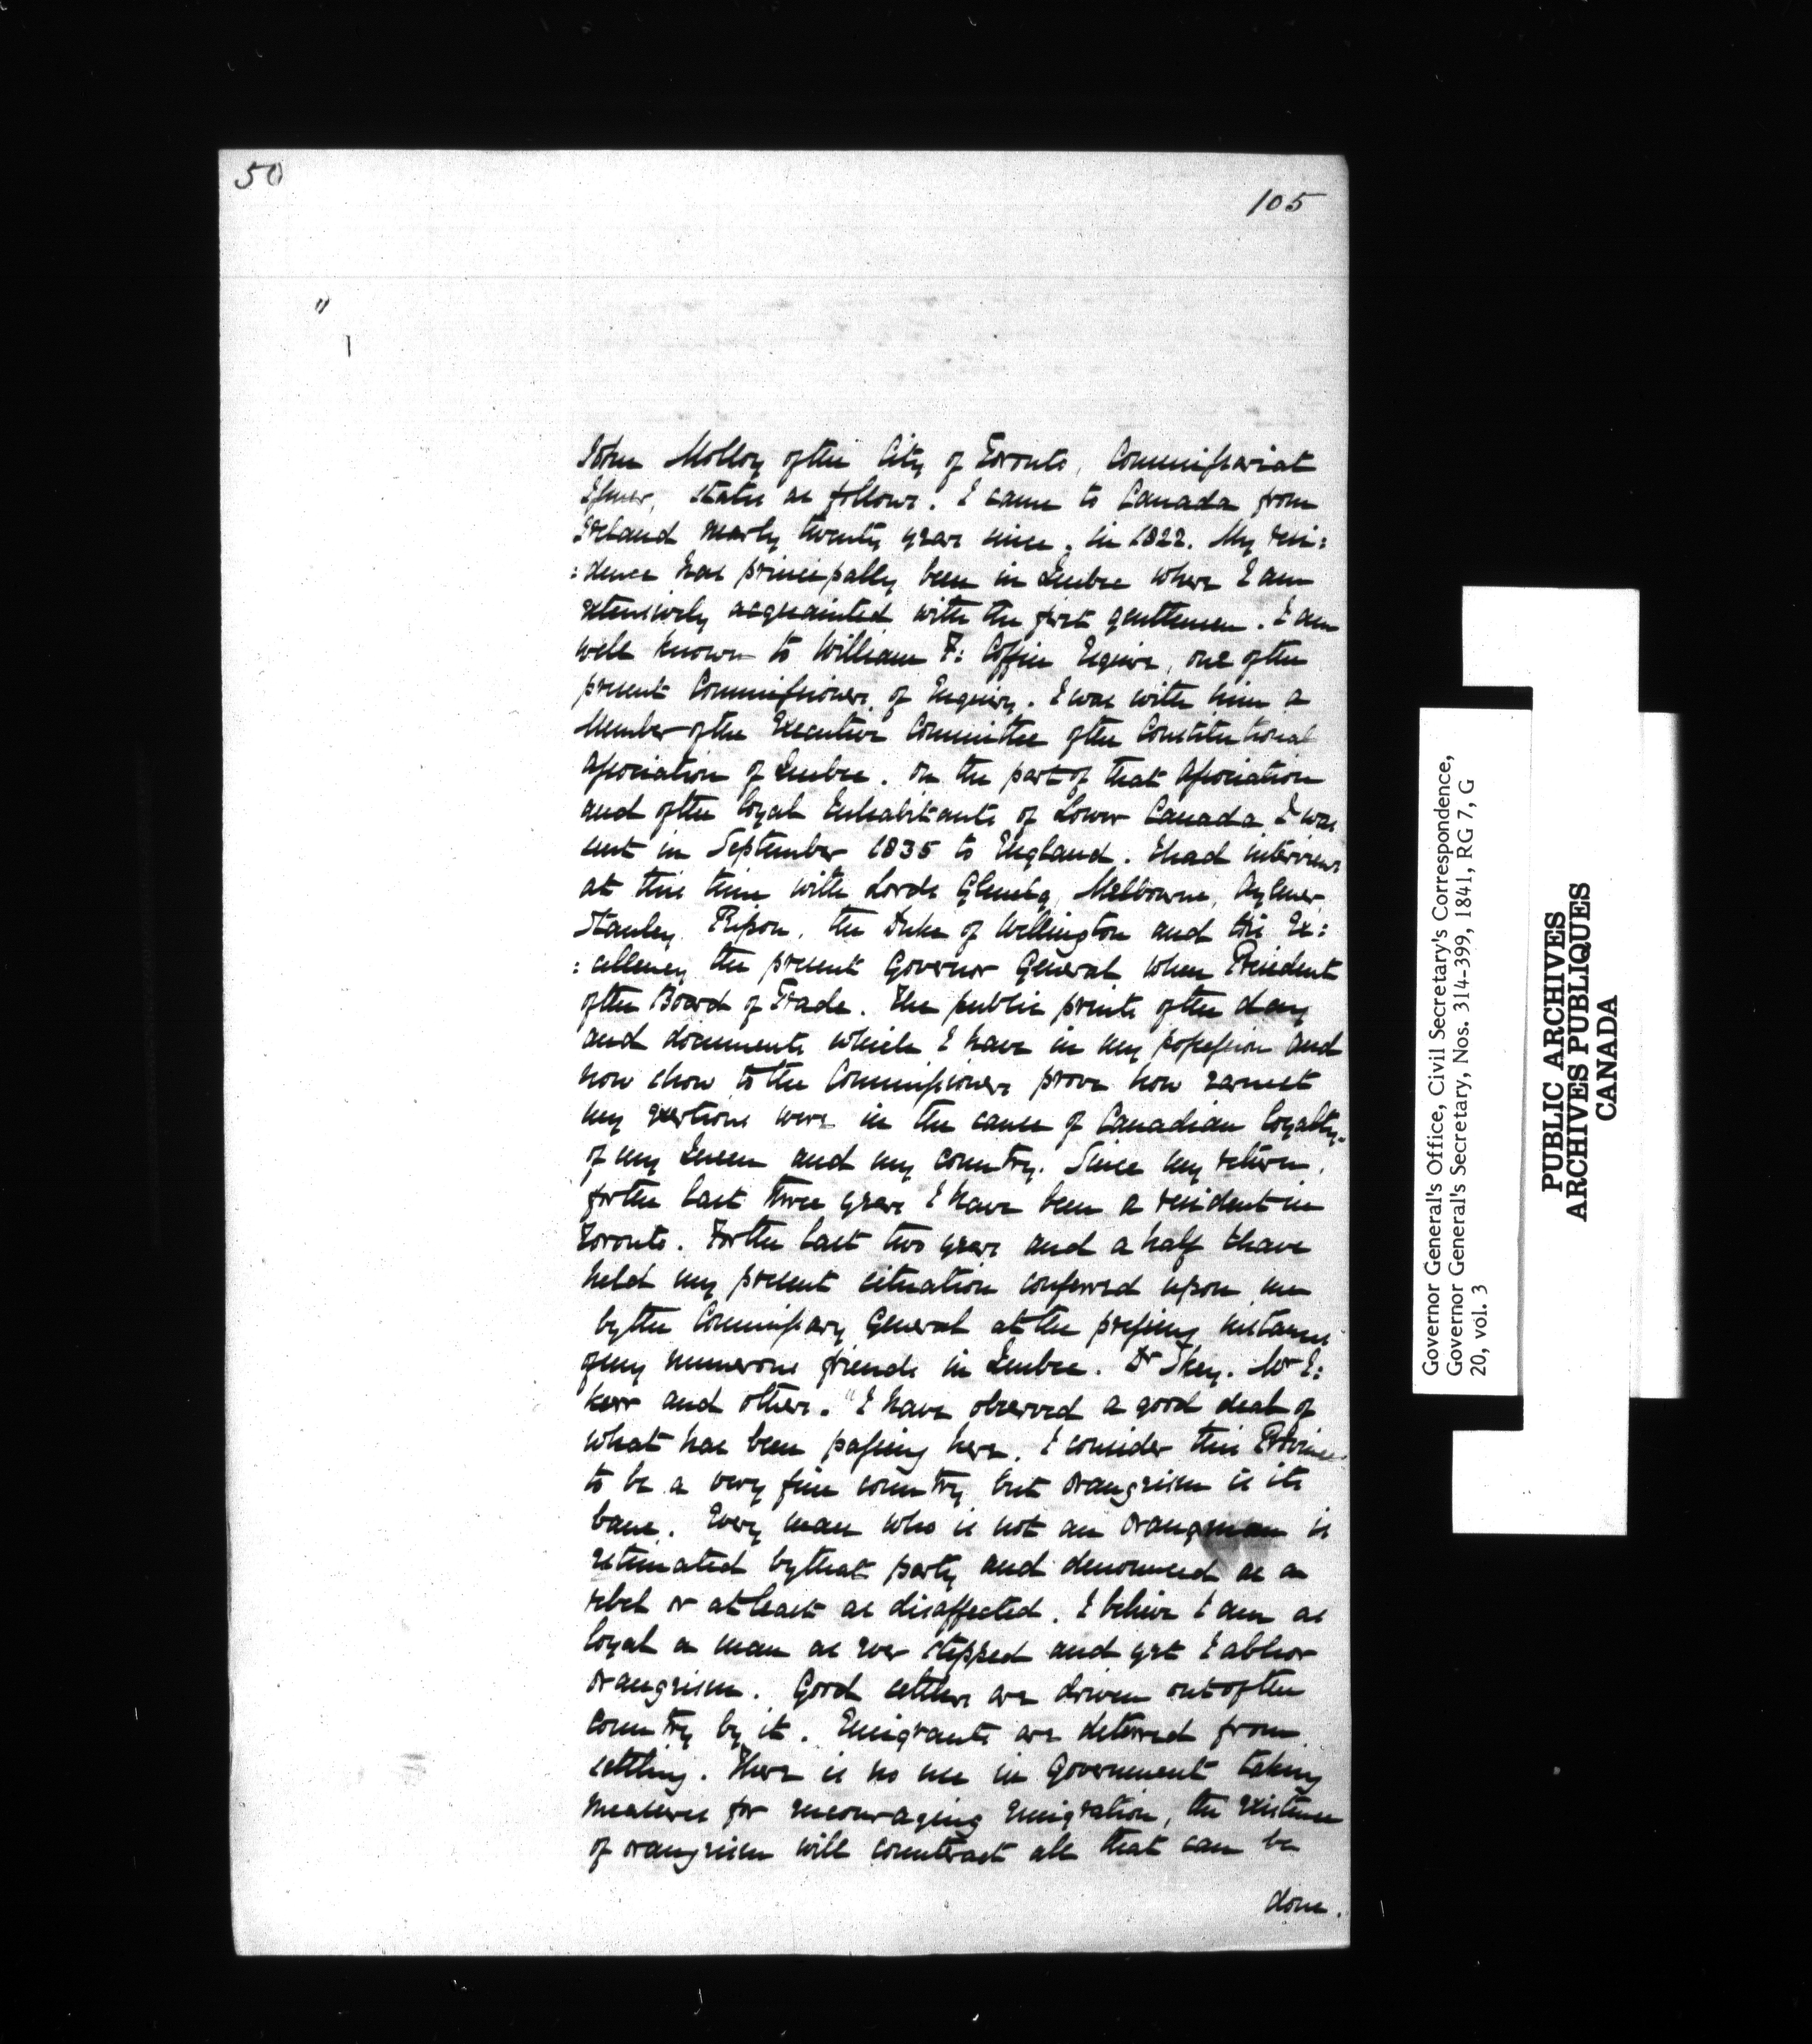 50
105
John Molloy of the City of Toronto, Commissariat
Issuer, states as follows. I came to Canada from
Ireland nearly twenty years since, in 1822. My resi:
:dence has principally been in Quebec where I am
extensively acquainted with the first gentlemen. I am
well known to William F: Coffin Esquire, one of the
present Commissioners of Enquiry. I was with him a
Member of the Executive Committee of the Constitutional
Association of Quebec. On the part of that Association
and of the loyal Inhabitants of Lower Canada I was
sent in September 1835 to England. I had interviews
at this time with Lords Glenelg, Melbourne, Aylmer,
Stanley, Ripon, the Duke of Wellington and His Ex:
:cellency the present Governor General when President
of the Board of Trade. The public prints of the day
and documents which I have in my possession and
now show to the Commissioners prove how earnest
my exertions were in the cause of Canadian loyalty,
of my Queen and my country. Since my return,
for the last three years I have been a resident in
Toronto. For the last two years and a half I have
held my present situation conferred upon me
by the Commissary General at the pressing instance
of my numerous friends in Quebec. Dr Skey. Mr E:
Kerr and others. "I have observed a good deal of
what has been passing here. I consider this Province
to be a very fine country but orangeism is its
bane. Every man who is not an orangeman is
estimated by that party and denounced as a
rebel or at least as disaffected. I believe I am as
loyal a man as ever stepped and yet I abhor
orangeism. Good settlers are driven out of the
country by it. Emigrants are deterred from
settling. There is no use in Government taking
measures for encouraging emigration, the existence
of orangeism will counteract all that can be
done.
Governor General's Office, Civil Secretary's Correspondence,
Governor General's Secretary, Nos. 314-399, 1841, RG 7, G
20, vol. 3
PUBLIC ARCHIVES
ARCHIVES PUBLIQUES
CANADA